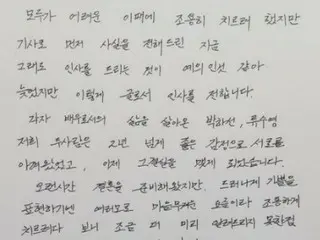 모두가 어려운 이때에 조용히 치르려 했지만
기사로 먼저 사실을 전해드린 지금
그래도 인사를 드리는 것이 예의인것 같아
늦었지만 이렇게 글로서 인사를 전합니다.
각자 배우로서의 삶을 살아온 박하선, 류수영
저희 두사람은 2년 넘게 좋은 감정으로 서로를
아껴왔었고, 이제 그결실을 맺게 되었습니다.
오랜시간 결혼을 준비해왔지만, 드러나게 기쁨을
표현하기엔 여러모로 마음무거운 요즘이라 조용하게
치르려다 보니 조금 더 미리 알려드리지 못한점